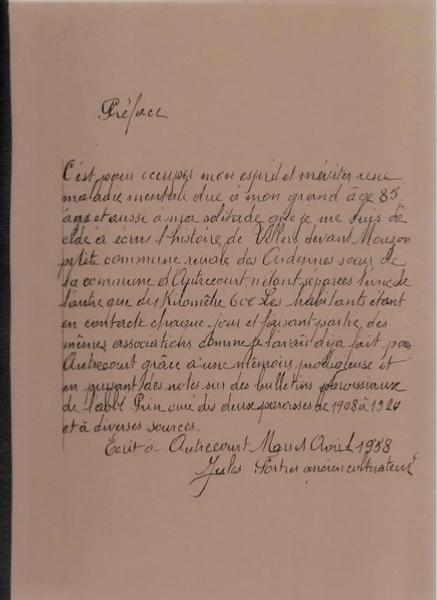 Préface
C'est pour occuper mon esprit et méviter une
maladie mentale due à mon grand âge 85
ans et aussi à ma solitude que je me suis dé
cidé à écrire l'histoire de Villers devant Mouzon
petite commune rurale des Ardennes sœur de
la commune d'Autrecourt n'étant séparées l'une de
l'autre que du Kilomètre 600 Les habitants étant
en contacte chaque jour et faisant partie des
mêmes associations comme je l'avait déja fait pour
Autrecourt grâce a une mémoire prodigieuse et
en puisant des notes sur des bulletins paroissiaux
de l'abbé Prin curé des deux paroisses de 1908 à 1920
et à diverses sources.
Ecrit à Autrecourt Mars et Avril 1958
Jules ancien cultivateur